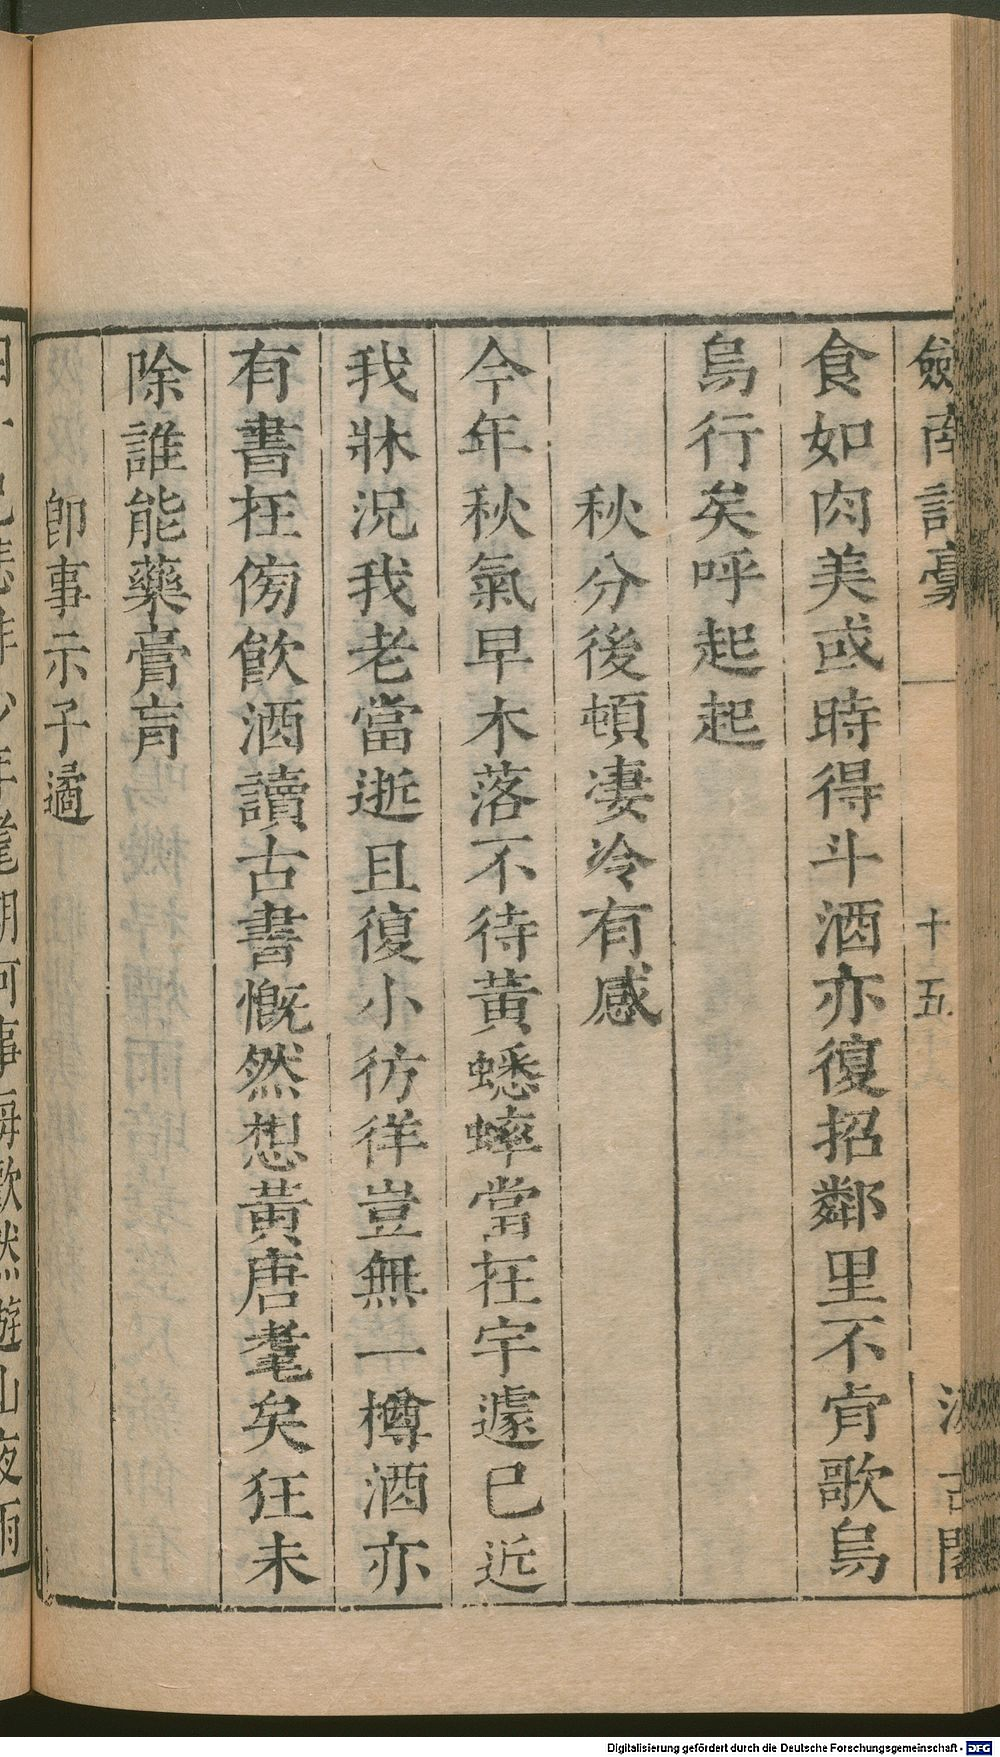 劒南詩稾 十五 汲古閣
食如肉美或時得斗酒亦復招鄰里不肯歌烏
烏行矣呼起起
秋分後頓凄冷有感
今年秋氣早木落不待黃蟋蟀當在宇遽已近
我牀況我老當逝且復小彷徉豈無一樽酒亦
有書在傍飲酒讀古書慨然想黃唐耄矣狂未
除誰能藥膏肓
卽事示子遹
Digitalisierung gefördert durch die Deutsche Forschungsgemeinschaft - DFG